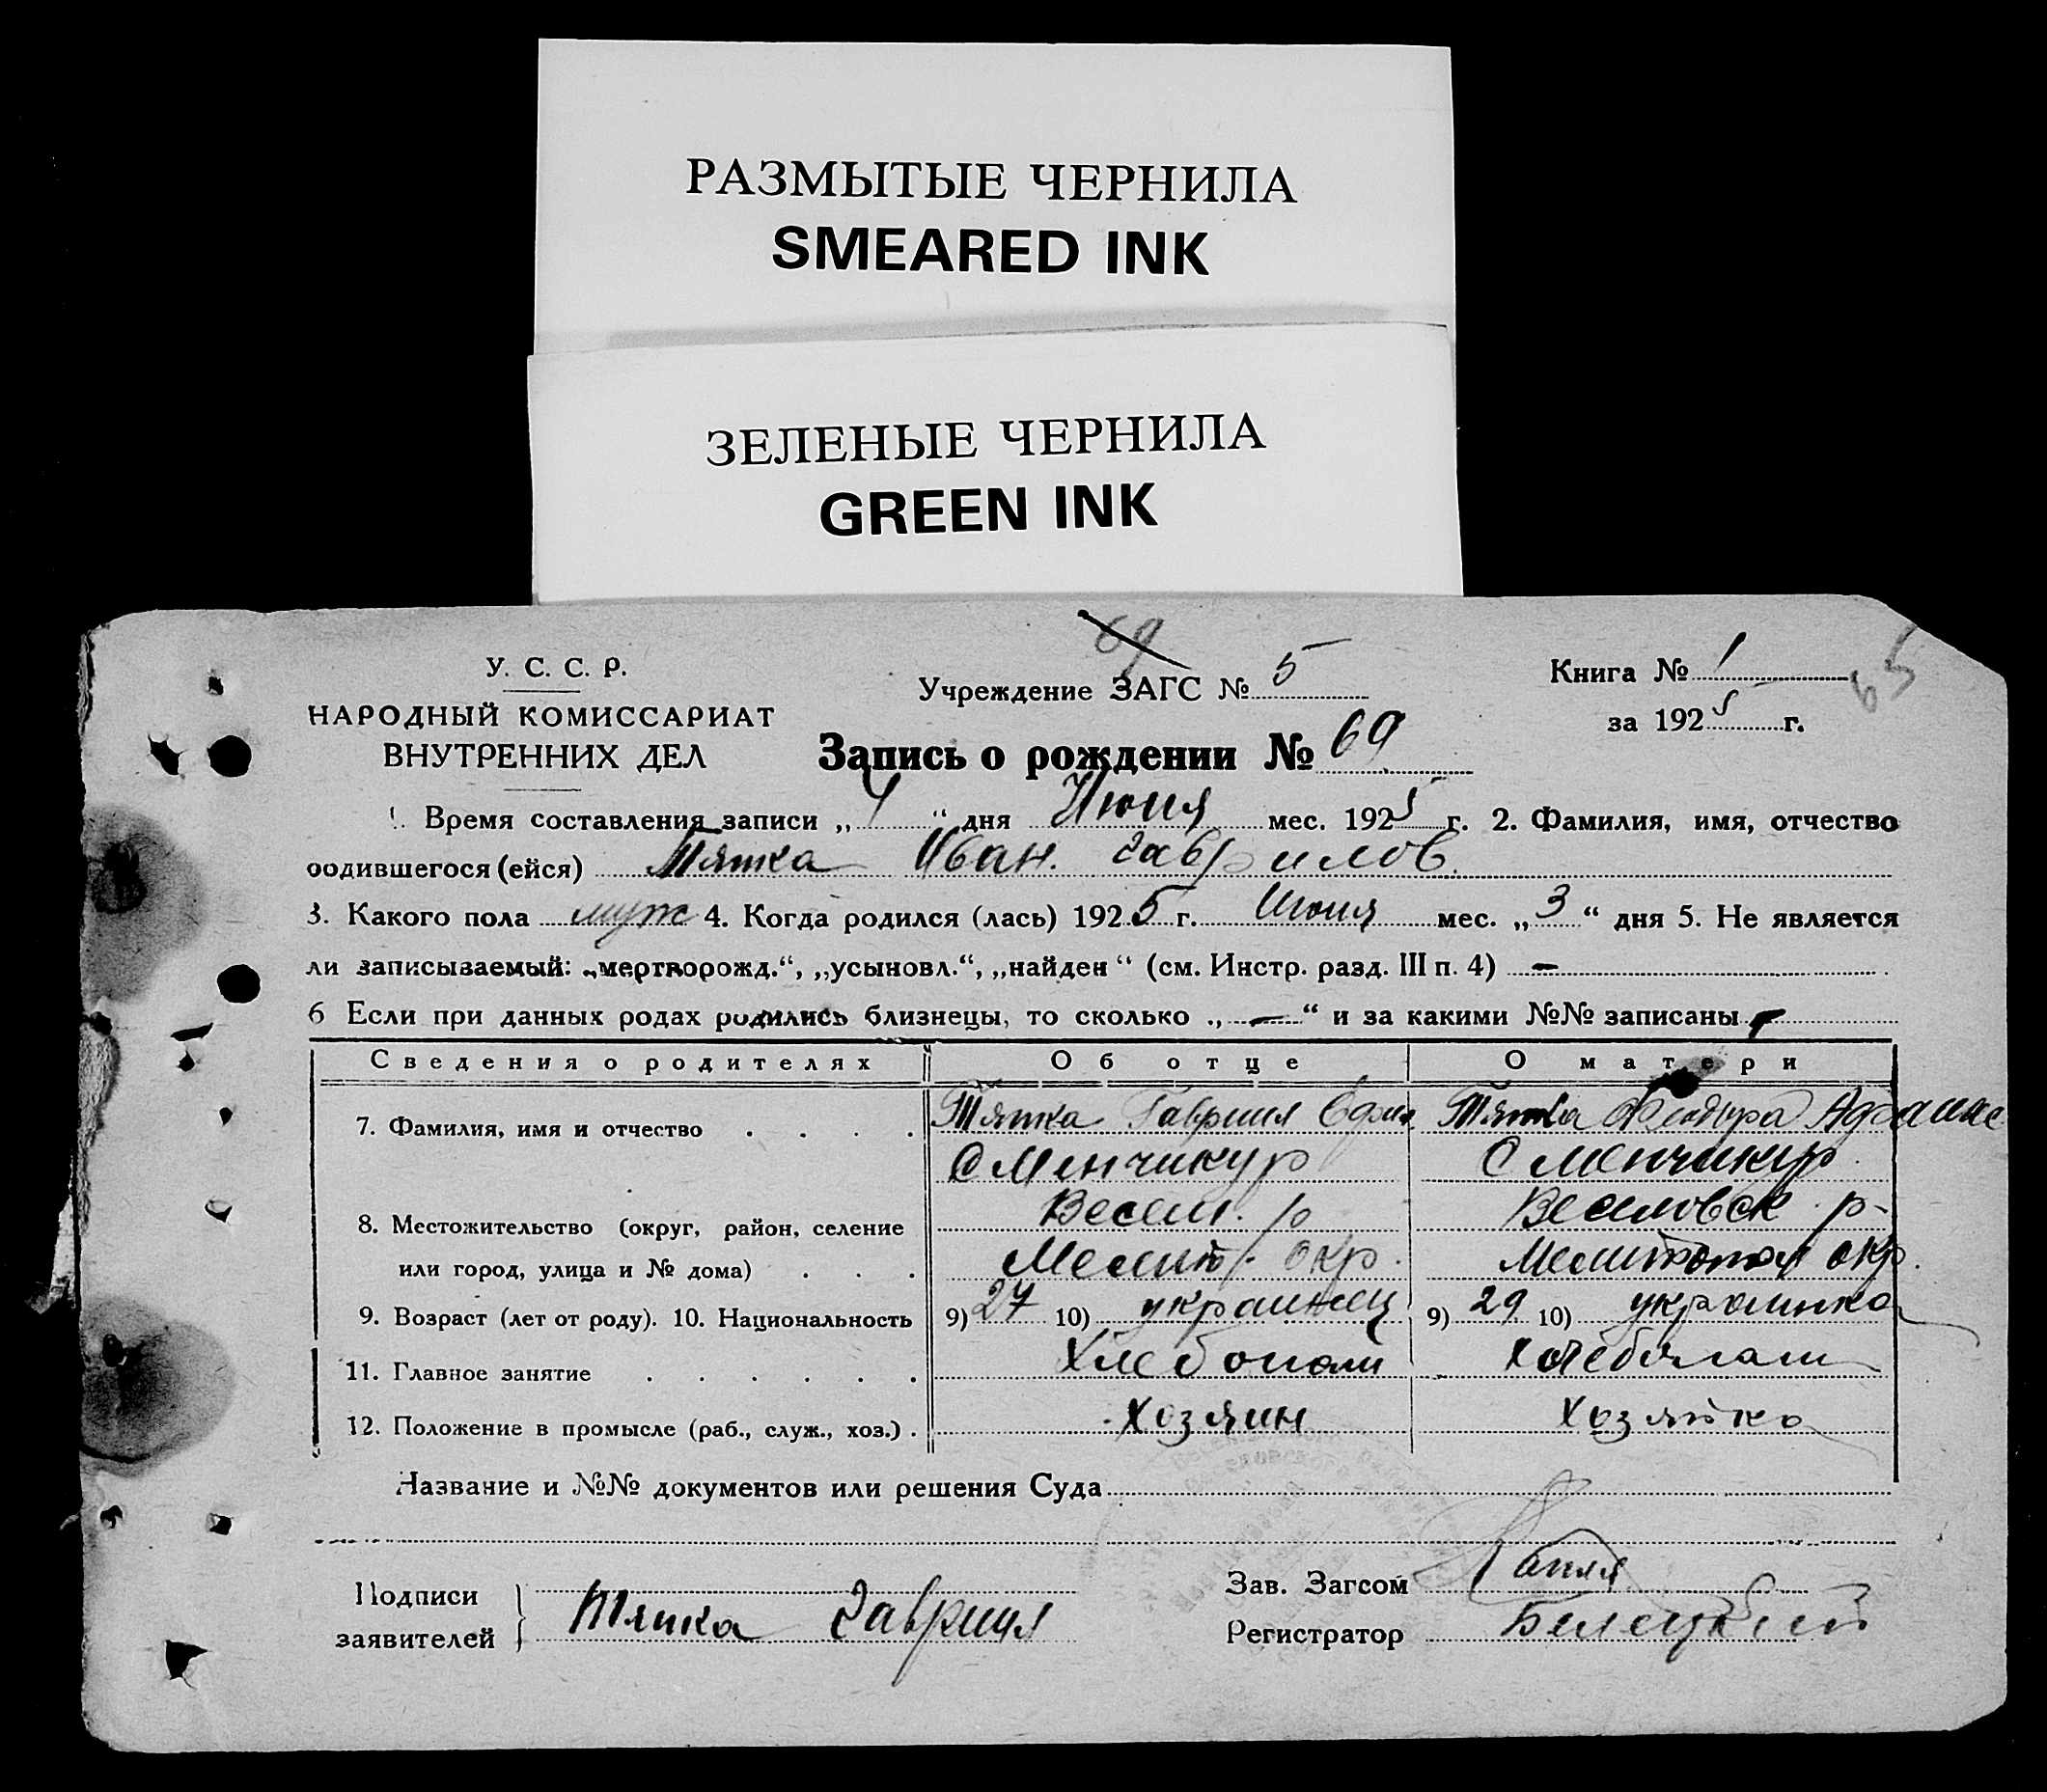 РАЗМЫТЫЕ ЧЕРНИЛА
SMEARED INK
ЗЕЛЕНЫЕ ЧЕРНИЛА
GREEN INK
69
65
У. С. С. Р.
НАРОДНЫЙ КОМИССАРИАТ
ВНУТРЕННИХ ДЕЛ
Учреждение ЗАГС № 5
Книга № 1
за 1925 г.
Запись о рождении № 69
1. Время составления записи „4“ дня Июня мес. 1925 г. 2. Фамилия, имя, отчество
родившегося (ейся) Тятка Иван. Гаврилов.
3. Какого пола муж 4. Когда родился (лась) 1925 г. Июня мес. „3“ дня 5. Не является
ли записываемый: „мертворожд.“, „усыновл.“, „найден“ (см. Инстр. разд. III п. 4) —
6 Если при данных родах родились близнецы, то сколько „—“ и за какими №№ записаны —
Сведения о родителях Об отце О матери
7. Фамилия, имя и отчество Тятка Гавриил Ефим. Тятка
С Менчикур С Менчикур
Весел. р Веселовск. р-
8. Местожительство (округ, район, селение
или город, улица и № дома) Мелит. окр. Мелитопол окр.
9. Возраст (лет от роду). 10. Национальность 9) 27 10) украинец 9) 29 10) украинка
11. Главное занятие
12. Положение в промысле (раб., служ., хоз.) хозяин хозяйка
Название и №№ документов или решения Суда
Подписи
заявителей } Тятка Гавриил
Зав. Загсом
Регистратор Белецкий